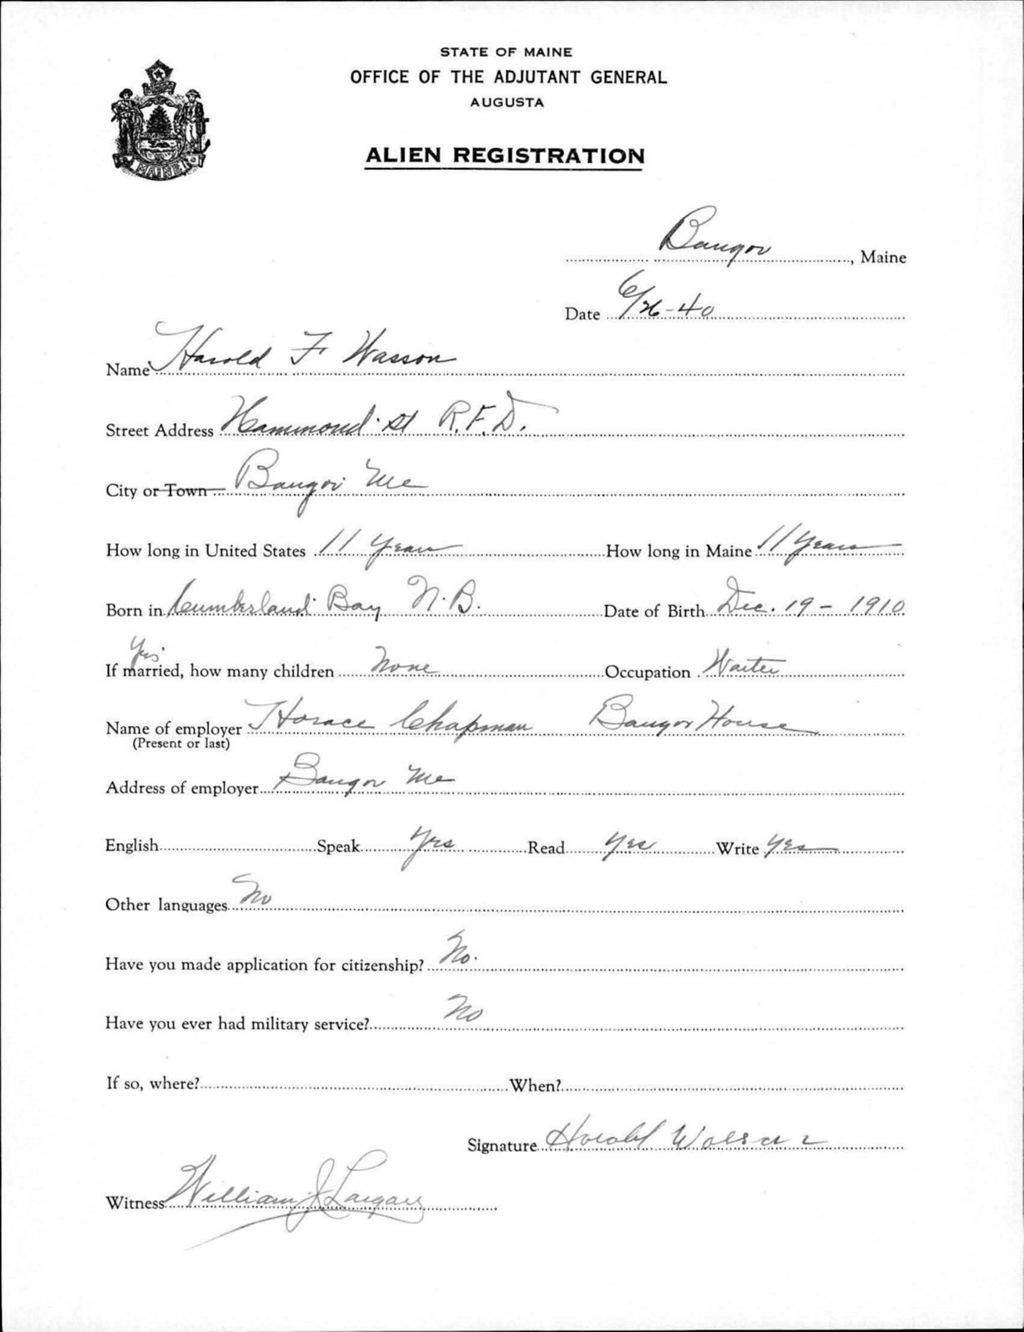 STATE OF MAINE
OFFICE OF THE ADJUTANT GENERAL
AUGUSTA
ALIEN REGISTRATION
MAINE
Bangor, Maine
Date 6/26-40
Name Harold F Wasson
Street Address Hammond St R.F.D.
City or Town Bangor Me
How long in United States 11 Years How long in Maine 11 Years
Born in Cumberland Bay N.B. Date of Birth Dec. 19 - 1910
Yes
If married, how many children None Occupation Waiter
Name of employer Horace Chapman Bangor House
(Present or last)
Address of employer Bangor Me
English Speak Yes Read Yes Write Yes
Other languages No
Have you made application for citizenship? No.
Have you ever had military service? No
If so, where? When?
Signature Harold Wasson
Witness William J